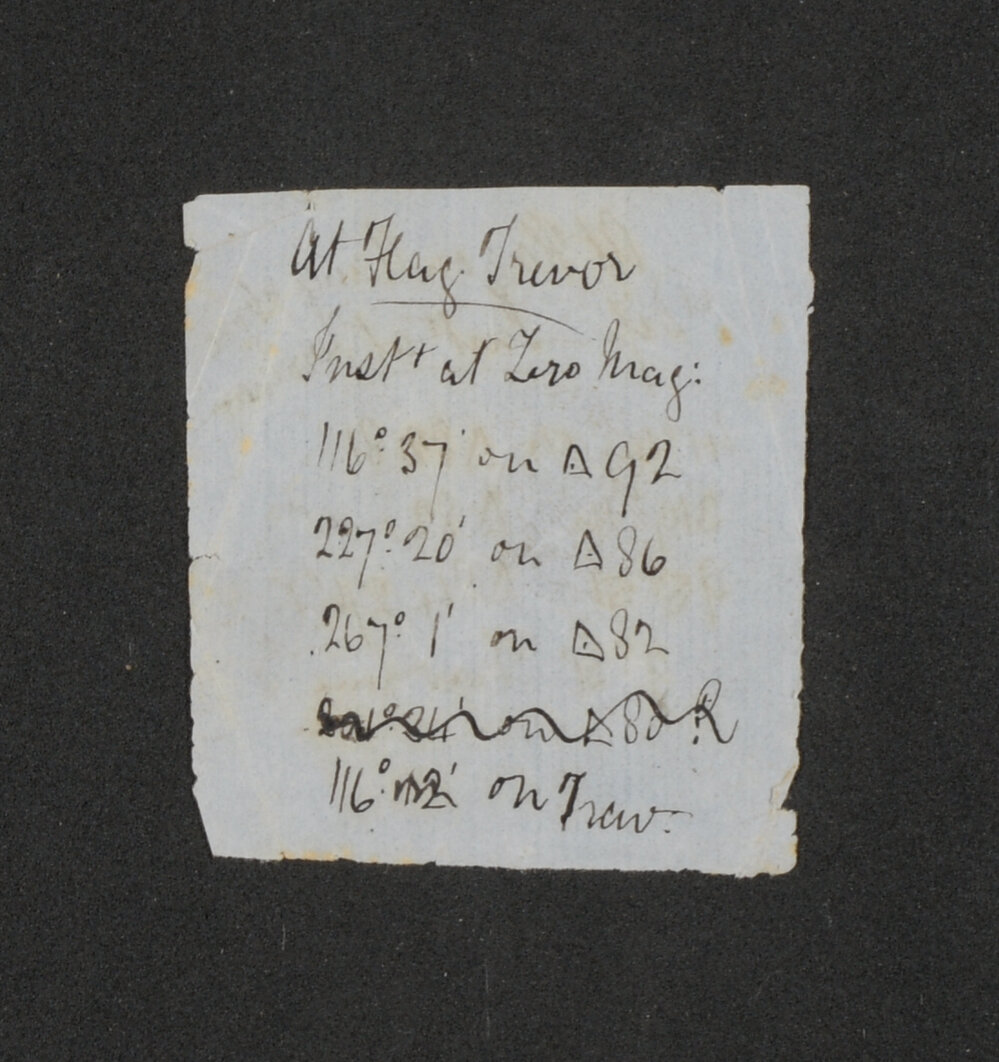 At Flag Trevor
Inst^t at Zero Mag:
116° 37' on △ 92
227° 20' on △ 86
267° 1' on △ 82
on △ 80
116° on Trev.